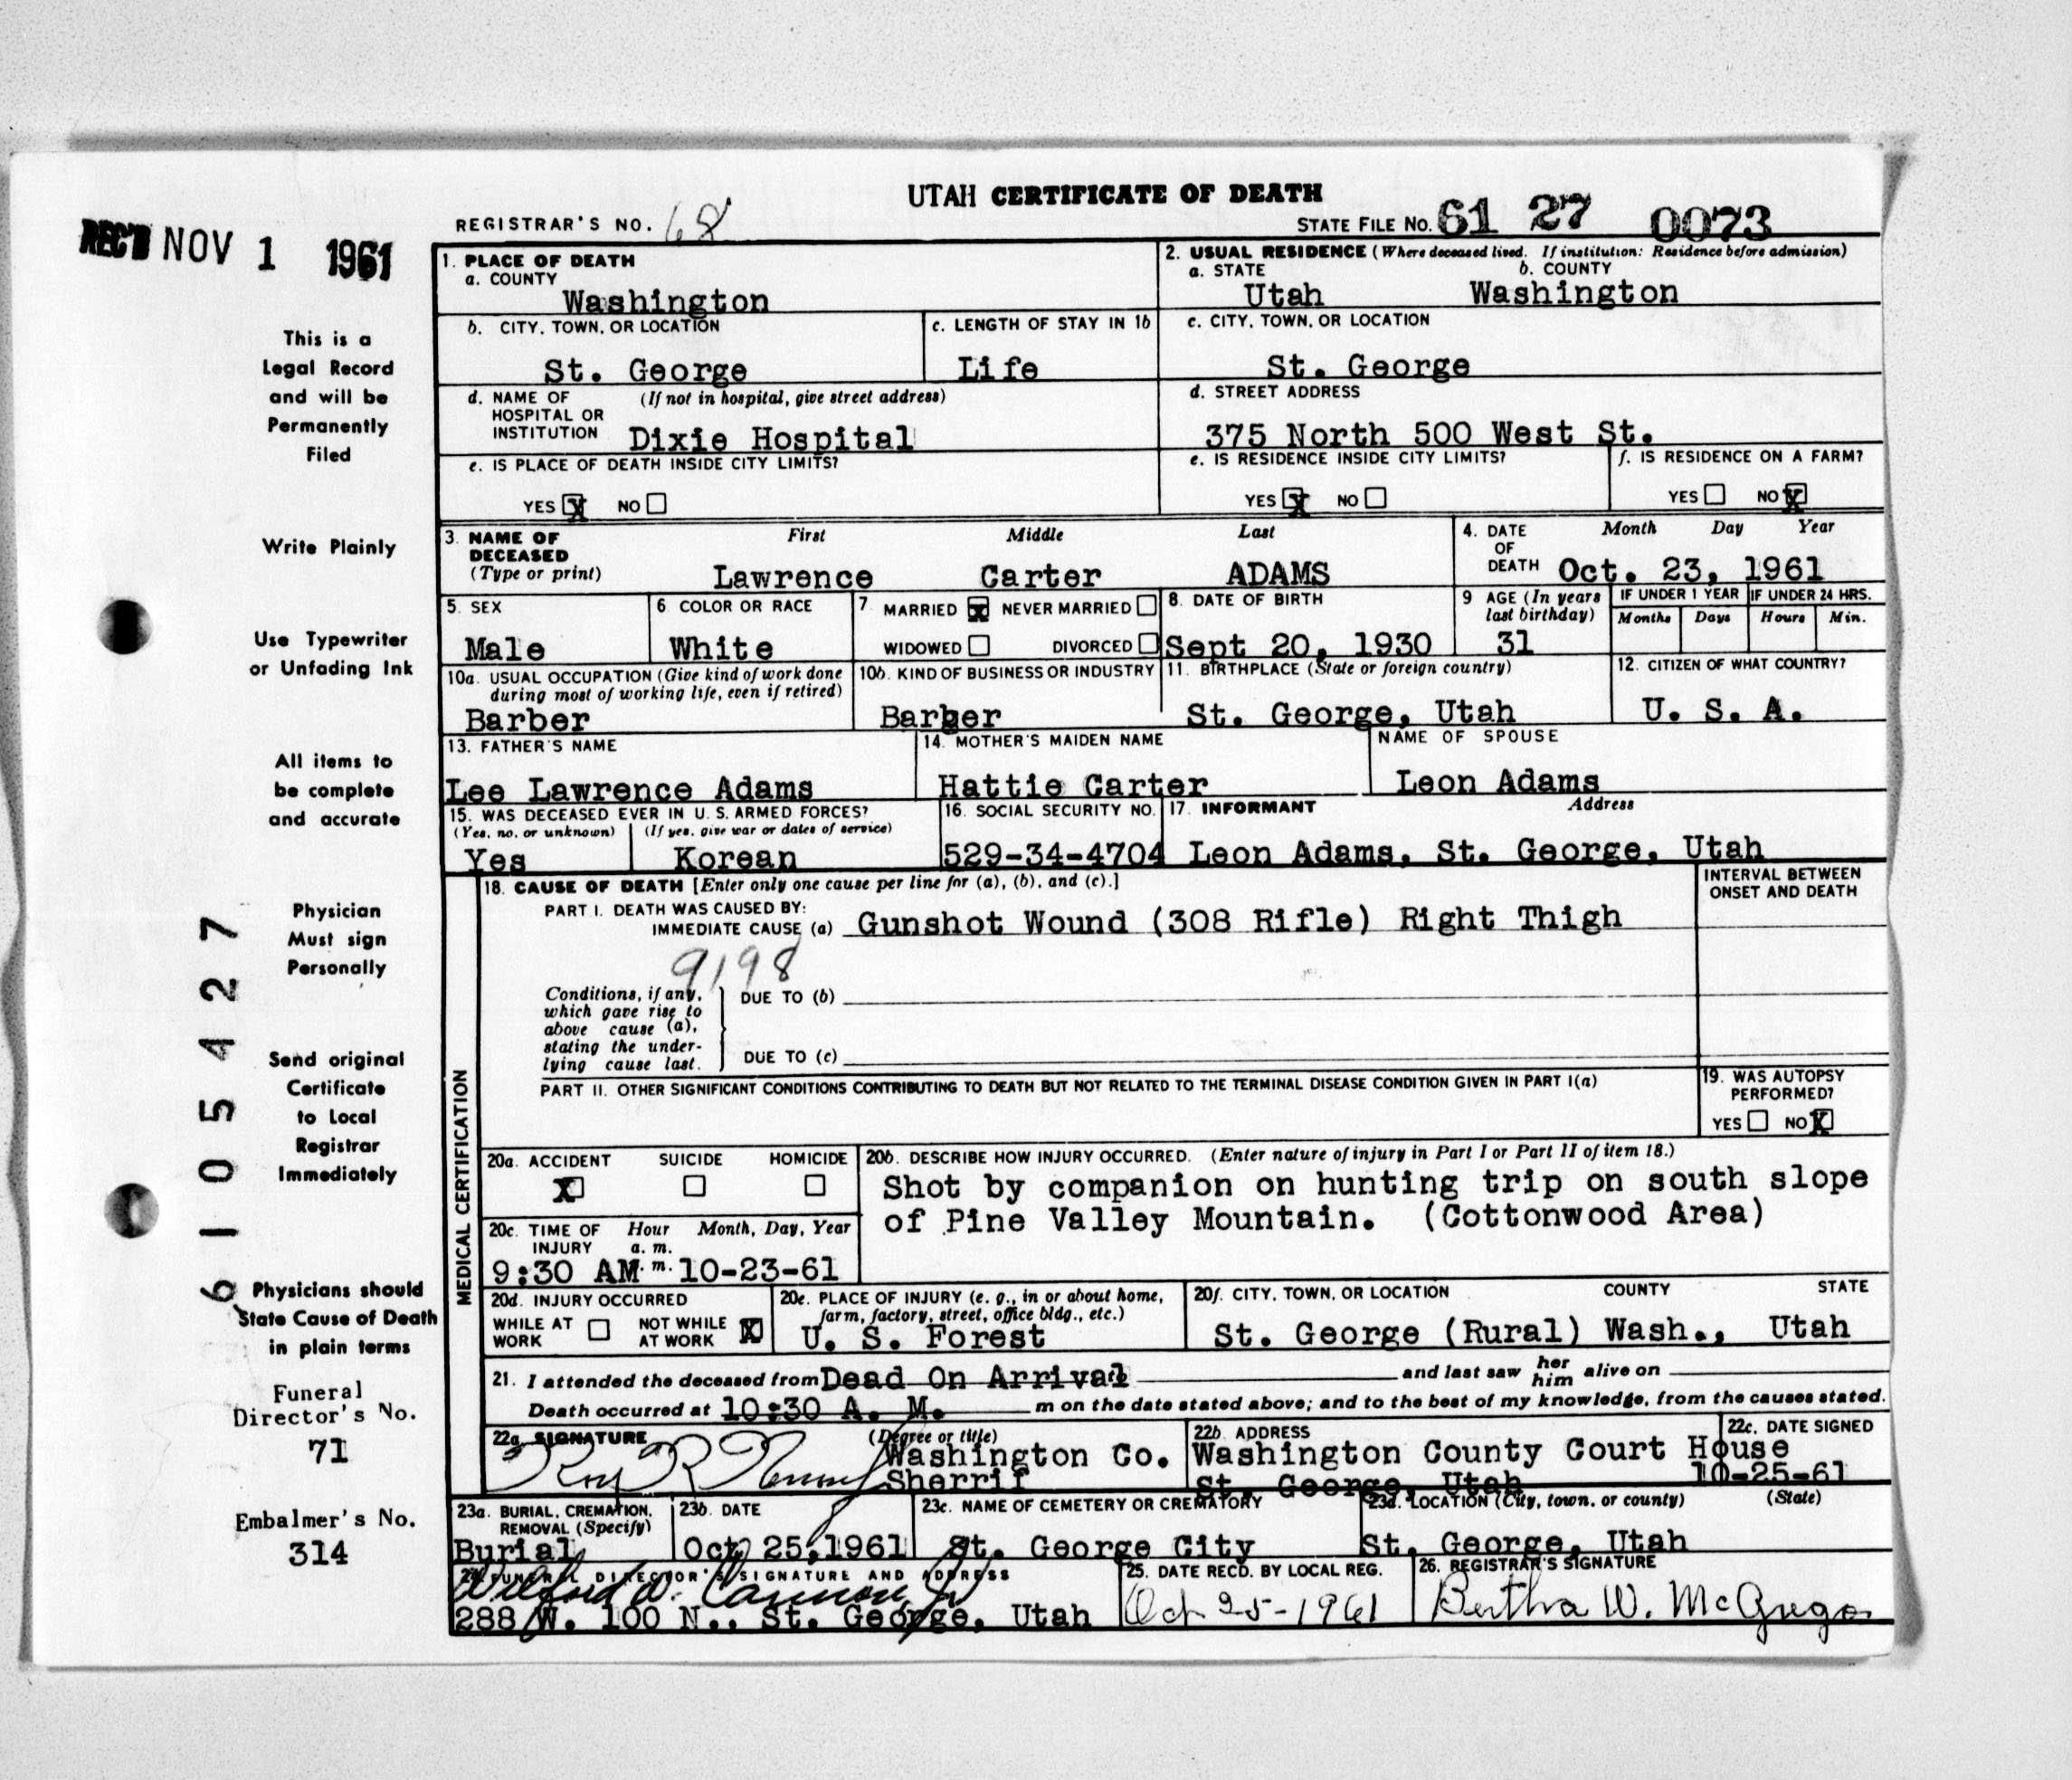 UTAH CERTIFICATE OF DEATH
REGISTRAR'S NO. 68
STATE FILE NO. 61 27 0073
REC'D NOV 1 1961
1. PLACE OF DEATH
a. COUNTY
Washington
2. USUAL RESIDENCE (Where deceased lived. If institution: Residence before admission)
a. STATE b. COUNTY
Utah Washington
b. CITY, TOWN, OR LOCATION
St. George
c. LENGTH OF STAY IN 1b
Life
c. CITY, TOWN, OR LOCATION
St. George
d. NAME OF (If not in hospital, give street address)
HOSPITAL OR
INSTITUTION Dixie Hospital
d. STREET ADDRESS
375 North 500 West St.
e. IS PLACE OF DEATH INSIDE CITY LIMITS?
YES X NO
e. IS RESIDENCE INSIDE CITY LIMITS?
YES X NO
f. IS RESIDENCE ON A FARM?
YES NO X
3. NAME OF DECEASED (Type or print)
First Middle Last
Lawrence Carter ADAMS
4. DATE OF DEATH
Month Day Year
Oct. 23, 1961
5. SEX
Male
6. COLOR OR RACE
White
7. MARRIED X NEVER MARRIED
WIDOWED DIVORCED
8. DATE OF BIRTH
Sept 20, 1930
9 AGE (In years last birthday)
31
IF UNDER 1 YEAR IF UNDER 24 HRS.
Months Days Hours Min.
10a. USUAL OCCUPATION (Give kind of work done
during most of working life, even if retired)
Barber
10b. KIND OF BUSINESS OR INDUSTRY
Barber
11. BIRTHPLACE (State or foreign country)
St. George, Utah
12. CITIZEN OF WHAT COUNTRY?
U. S. A.
13. FATHER'S NAME
Lee Lawrence Adams
14. MOTHER'S MAIDEN NAME
Hattie Carter
NAME OF SPOUSE
Leon Adams
15. WAS DECEASED EVER IN U. S. ARMED FORCES?
(Yes, no, or unknown) (If yes, give war or dates of service)
Yes Korean
16. SOCIAL SECURITY NO.
529-34-4704
17. INFORMANT Address
Leon Adams, St. George, Utah
MEDICAL CERTIFICATION
18. CAUSE OF DEATH [Enter only one cause per line for (a), (b), and (c).]
INTERVAL BETWEEN
ONSET AND DEATH
PART I. DEATH WAS CAUSED BY:
IMMEDIATE CAUSE (a) Gunshot Wound (308 Rifle) Right Thigh
9198
Conditions, if any,
which gave rise to
above cause (a),
stating the under-
lying cause last.
DUE TO (b)
DUE TO (c)
PART II. OTHER SIGNIFICANT CONDITIONS CONTRIBUTING TO DEATH BUT NOT RELATED TO THE TERMINAL DISEASE CONDITION GIVEN IN PART I(a)
19. WAS AUTOPSY
PERFORMED?
YES NO X
20a. ACCIDENT SUICIDE HOMICIDE
X
20b. DESCRIBE HOW INJURY OCCURRED. (Enter nature of injury in Part I or Part II of item 18.)
Shot by companion on hunting trip on south slope
of Pine Valley Mountain. (Cottonwood Area)
20c. TIME OF INJURY Hour Month, Day, Year
a. m.
9:30 AM m. 10-23-61
20d. INJURY OCCURRED
WHILE AT WORK NOT WHILE AT WORK X
20e. PLACE OF INJURY (e. g., in or about home,
farm, factory, street, office bldg., etc.)
U. S. Forest
20f. CITY, TOWN, OR LOCATION COUNTY STATE
St. George (Rural) Wash., Utah
21. I attended the deceased from Dead On Arrival and last saw her him alive on
Death occurred at 10:30 A. M. m on the date stated above; and to the best of my knowledge, from the causes stated.
22a. SIGNATURE (Degree or title)
Washington Co.
Sherrif
22b. ADDRESS
Washington County Court House
St. George, Utah
22c. DATE SIGNED
10-25-61
23a. BURIAL, CREMATION,
REMOVAL (Specify)
Burial
23b. DATE
Oct 25, 1961
23c. NAME OF CEMETERY OR CREMATORY
St. George City
23d. LOCATION (City, town, or county) (State)
St. George, Utah
24. FUNERAL DIRECTOR'S SIGNATURE AND ADDRESS
288 W. 100 N., St. George, Utah
25. DATE RECD. BY LOCAL REG.
Oct 25-1961
26. REGISTRAR'S SIGNATURE
Bertha W. McGregor
This is a
Legal Record
and will be
Permanently
Filed
Write Plainly
Use Typewriter
or Unfading Ink
All items to
be complete
and accurate
Physician
Must sign
Personally
Send original
Certificate
to Local
Registrar
Immediately
Physicians should
State Cause of Death
in plain terms
Funeral
Director's No.
71
Embalmer's No.
314
6105427